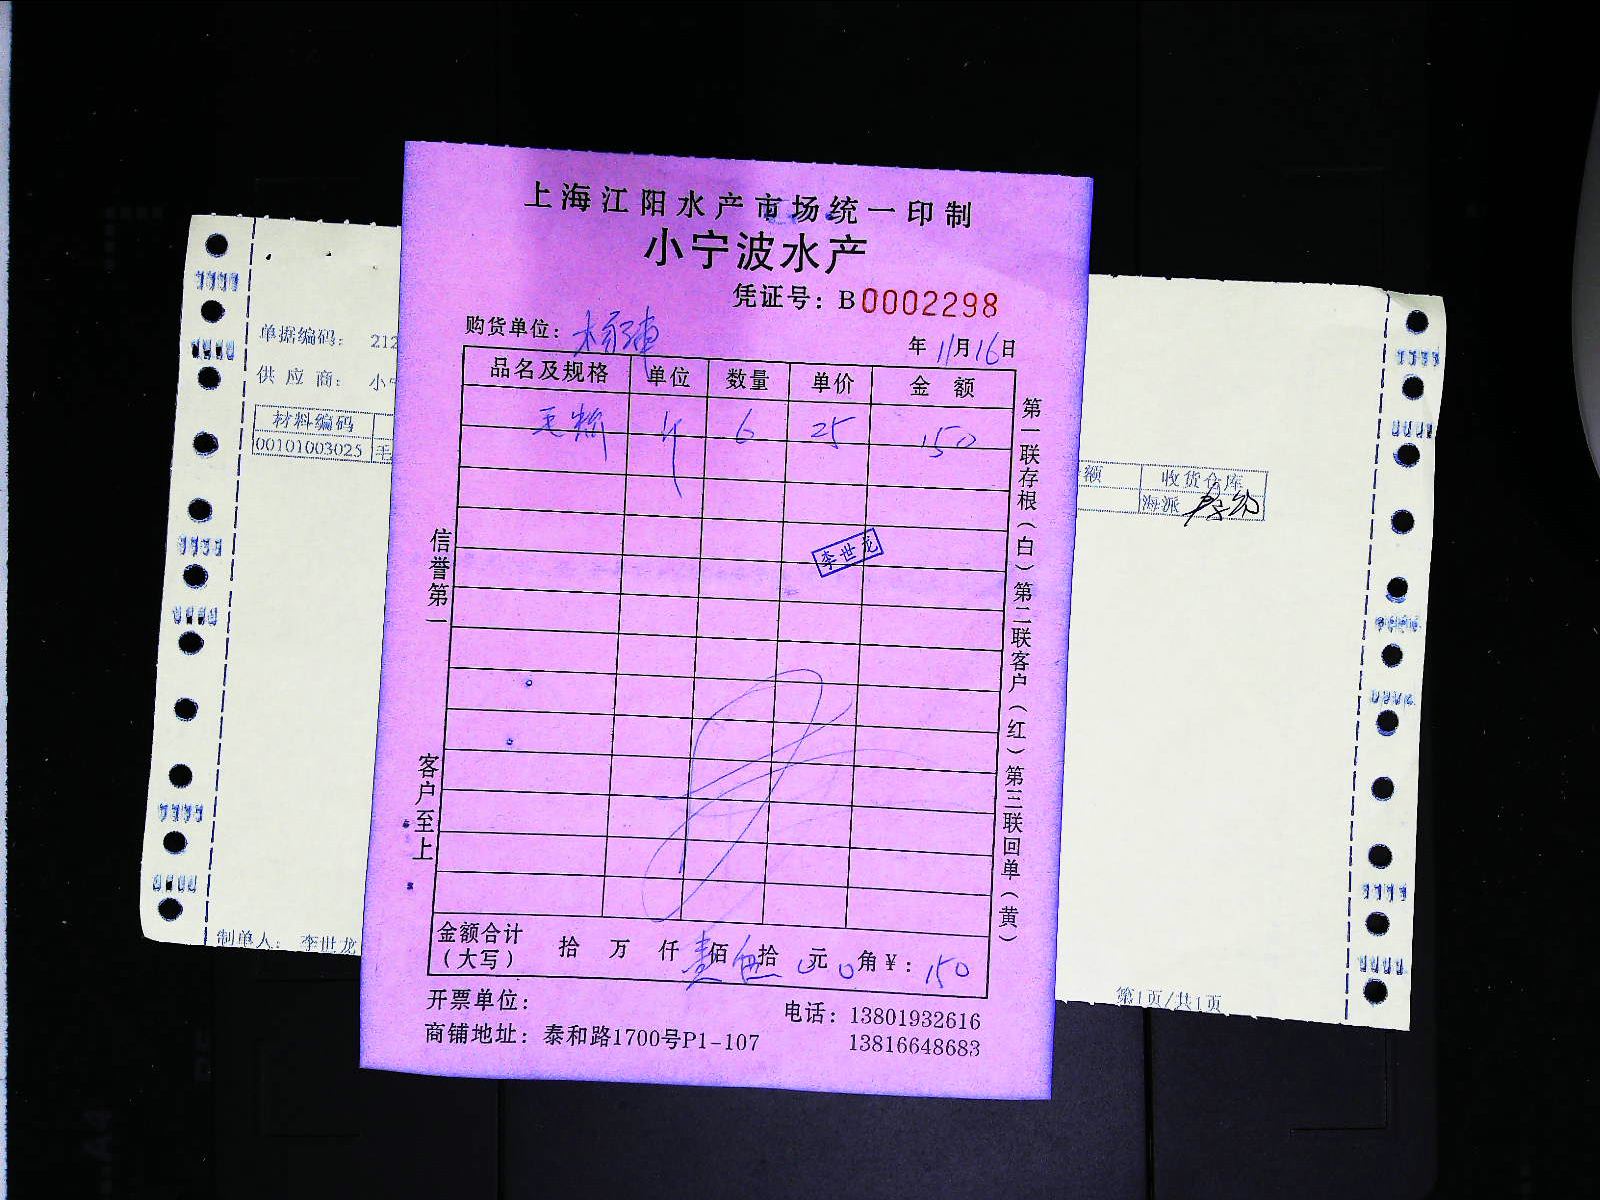 上海江阳水产市场统一印制
小宁波水产
凭证号：B0002298
购货单位：
年11月16日
品名及规格 单位 数量 单价 金额
毛 斤 6 25 150
李世龙
信誉第一
客户至上
第一联存根（白）第二联客户（红）第三联回单（黄）
金额合计（大写） 拾 万 仟 壹佰 伍拾 0元 0角 ¥：150
开票单位：
电话：13801932616
13816648683
商铺地址：泰和路1700号P1-107
单据编码： 212
供应商： 小宁
材料编码
00101003025 毛
额 收货仓库
海派
制单人： 李世龙
第1页/共1页